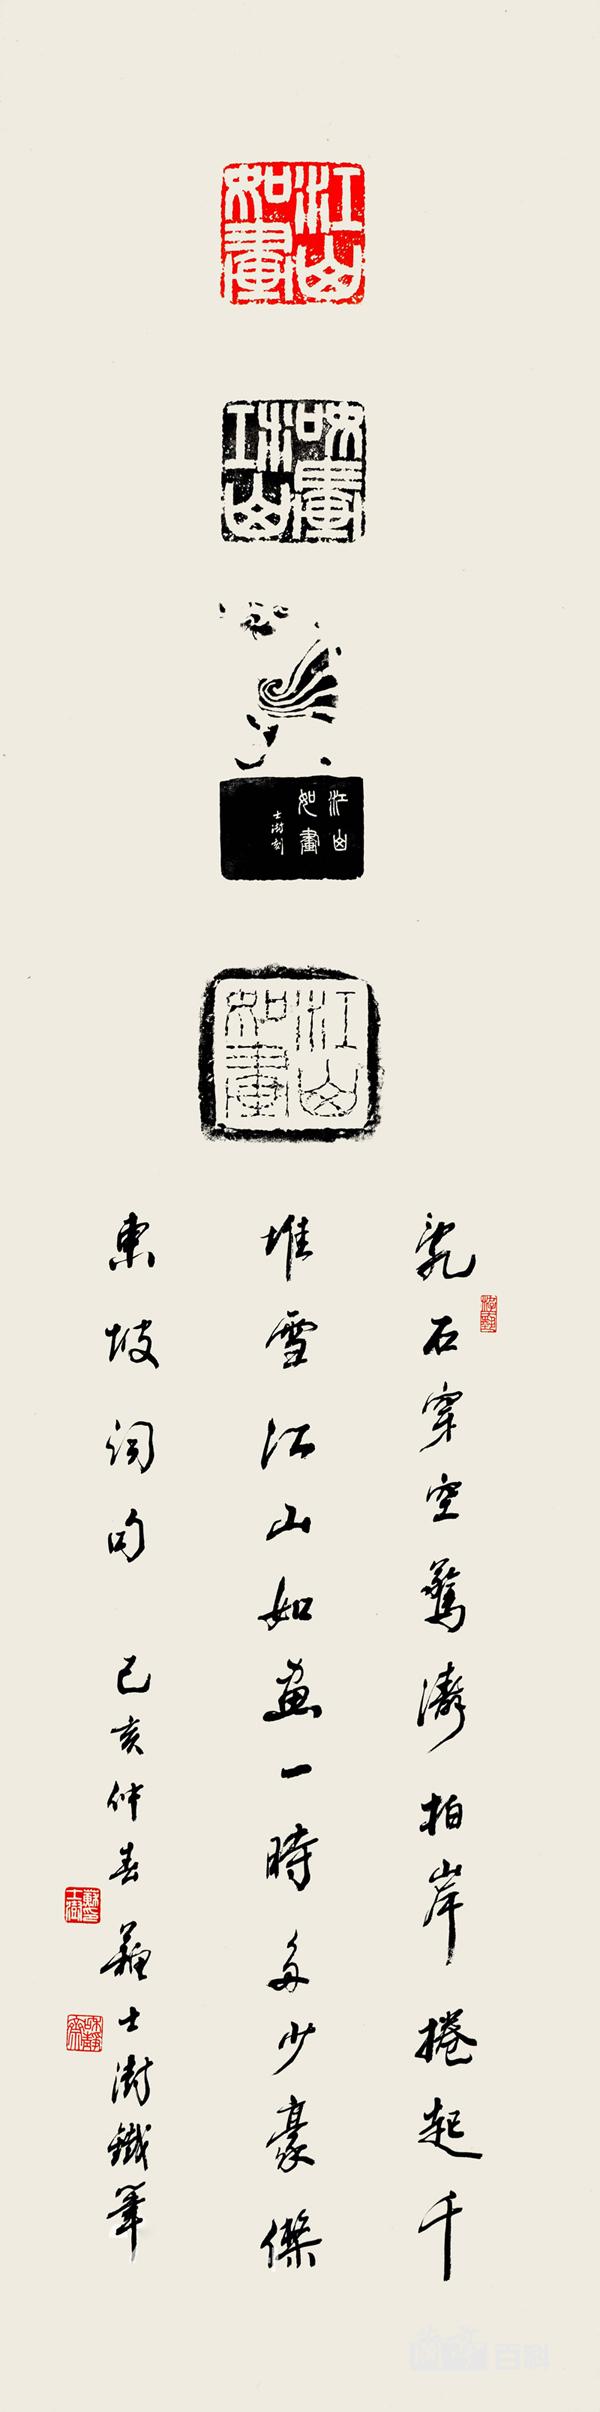 江山如畫
江山如畫
江山
如畫
士澍刻
江山如畫
亂石穿空驚濤拍岸捲起千
堆雪江山如畫一時多少豪傑
東坡詞句 己亥仲春蘇士澍鐵筆
蘇士澍印
百科